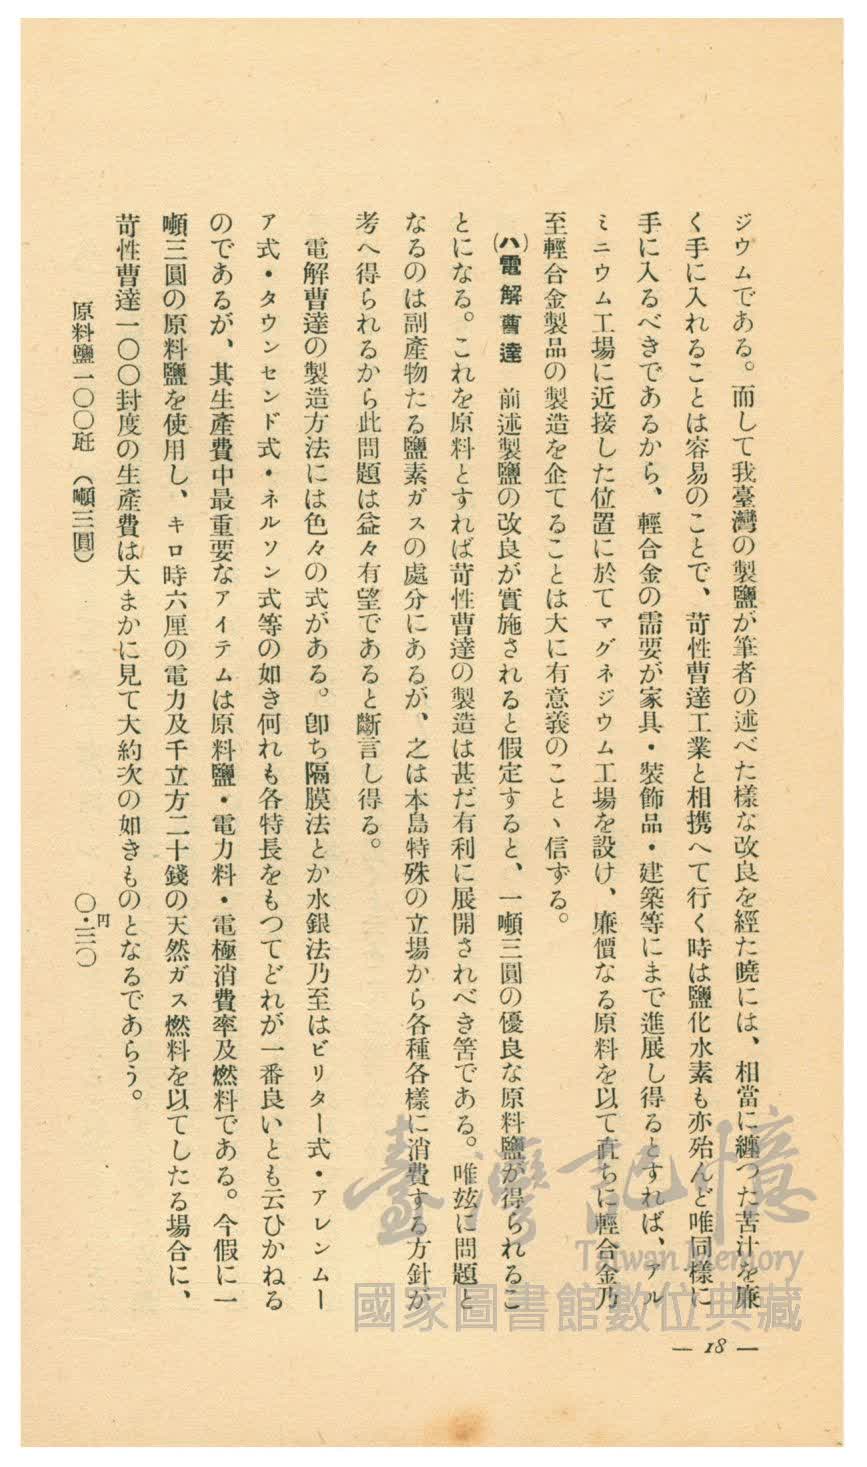 ジウムである。而して我臺灣の製鹽が筆者の述べた樣な改良を經た曉には、相當に纏つた苦汁を廉
く手に入れることは容易のことで、苛性曹達工業と相携へて行く時は鹽化水素も亦殆んど唯同樣に
手に入るべきであるから、輕合金の需要が家具・裝飾品・建築等にまで進展し得るとすれば、アル
ミニウム工場に近接した位置に於てマグネジウム工場を設け、廉價なる原料を以て直ちに輕合金乃
至輕合金製品の製造を企てることは大に有意義のことゝ信ずる。
(ハ)電解曹達 前述製鹽の改良が實施されると假定すると、一噸三圓の優良な原料鹽が得られるこ
とになる。これを原料とすれば苛性曹達の製造は甚だ有利に展開されべき筈である。唯玆に問題と
なるのは副產物たる鹽素ガスの處分にあるが、之は本島特殊の立場から各種各樣に消費する方針が
考へ得られるから此問題は益々有望であると斷言し得る。
電解曹達の製造方法には色々の式がある。卽ち隔膜法とか水銀法乃至はビリター式・アレンムー
ア式・タウンセンド式・ネルソン式等の如き何れも各特長をもつてどれが一番良いとも云ひかねる
のであるが、其生產費中最重要なアイテムは原料鹽・電力料・電極消費率及燃料である。今假に一
噸三圓の原料鹽を使用し、キロ時六厘の電力及千立方二十錢の天然ガス燃料を以てしたる場合に、
苛性曹達一〇〇封度の生產費は大まかに見て大約次の如きものとなるであらう。
原料鹽一〇〇瓩 (噸三圓) 〇・三〇円
— 18 —
臺灣記憶
Taiwan Memory
國家圖書館數位典藏